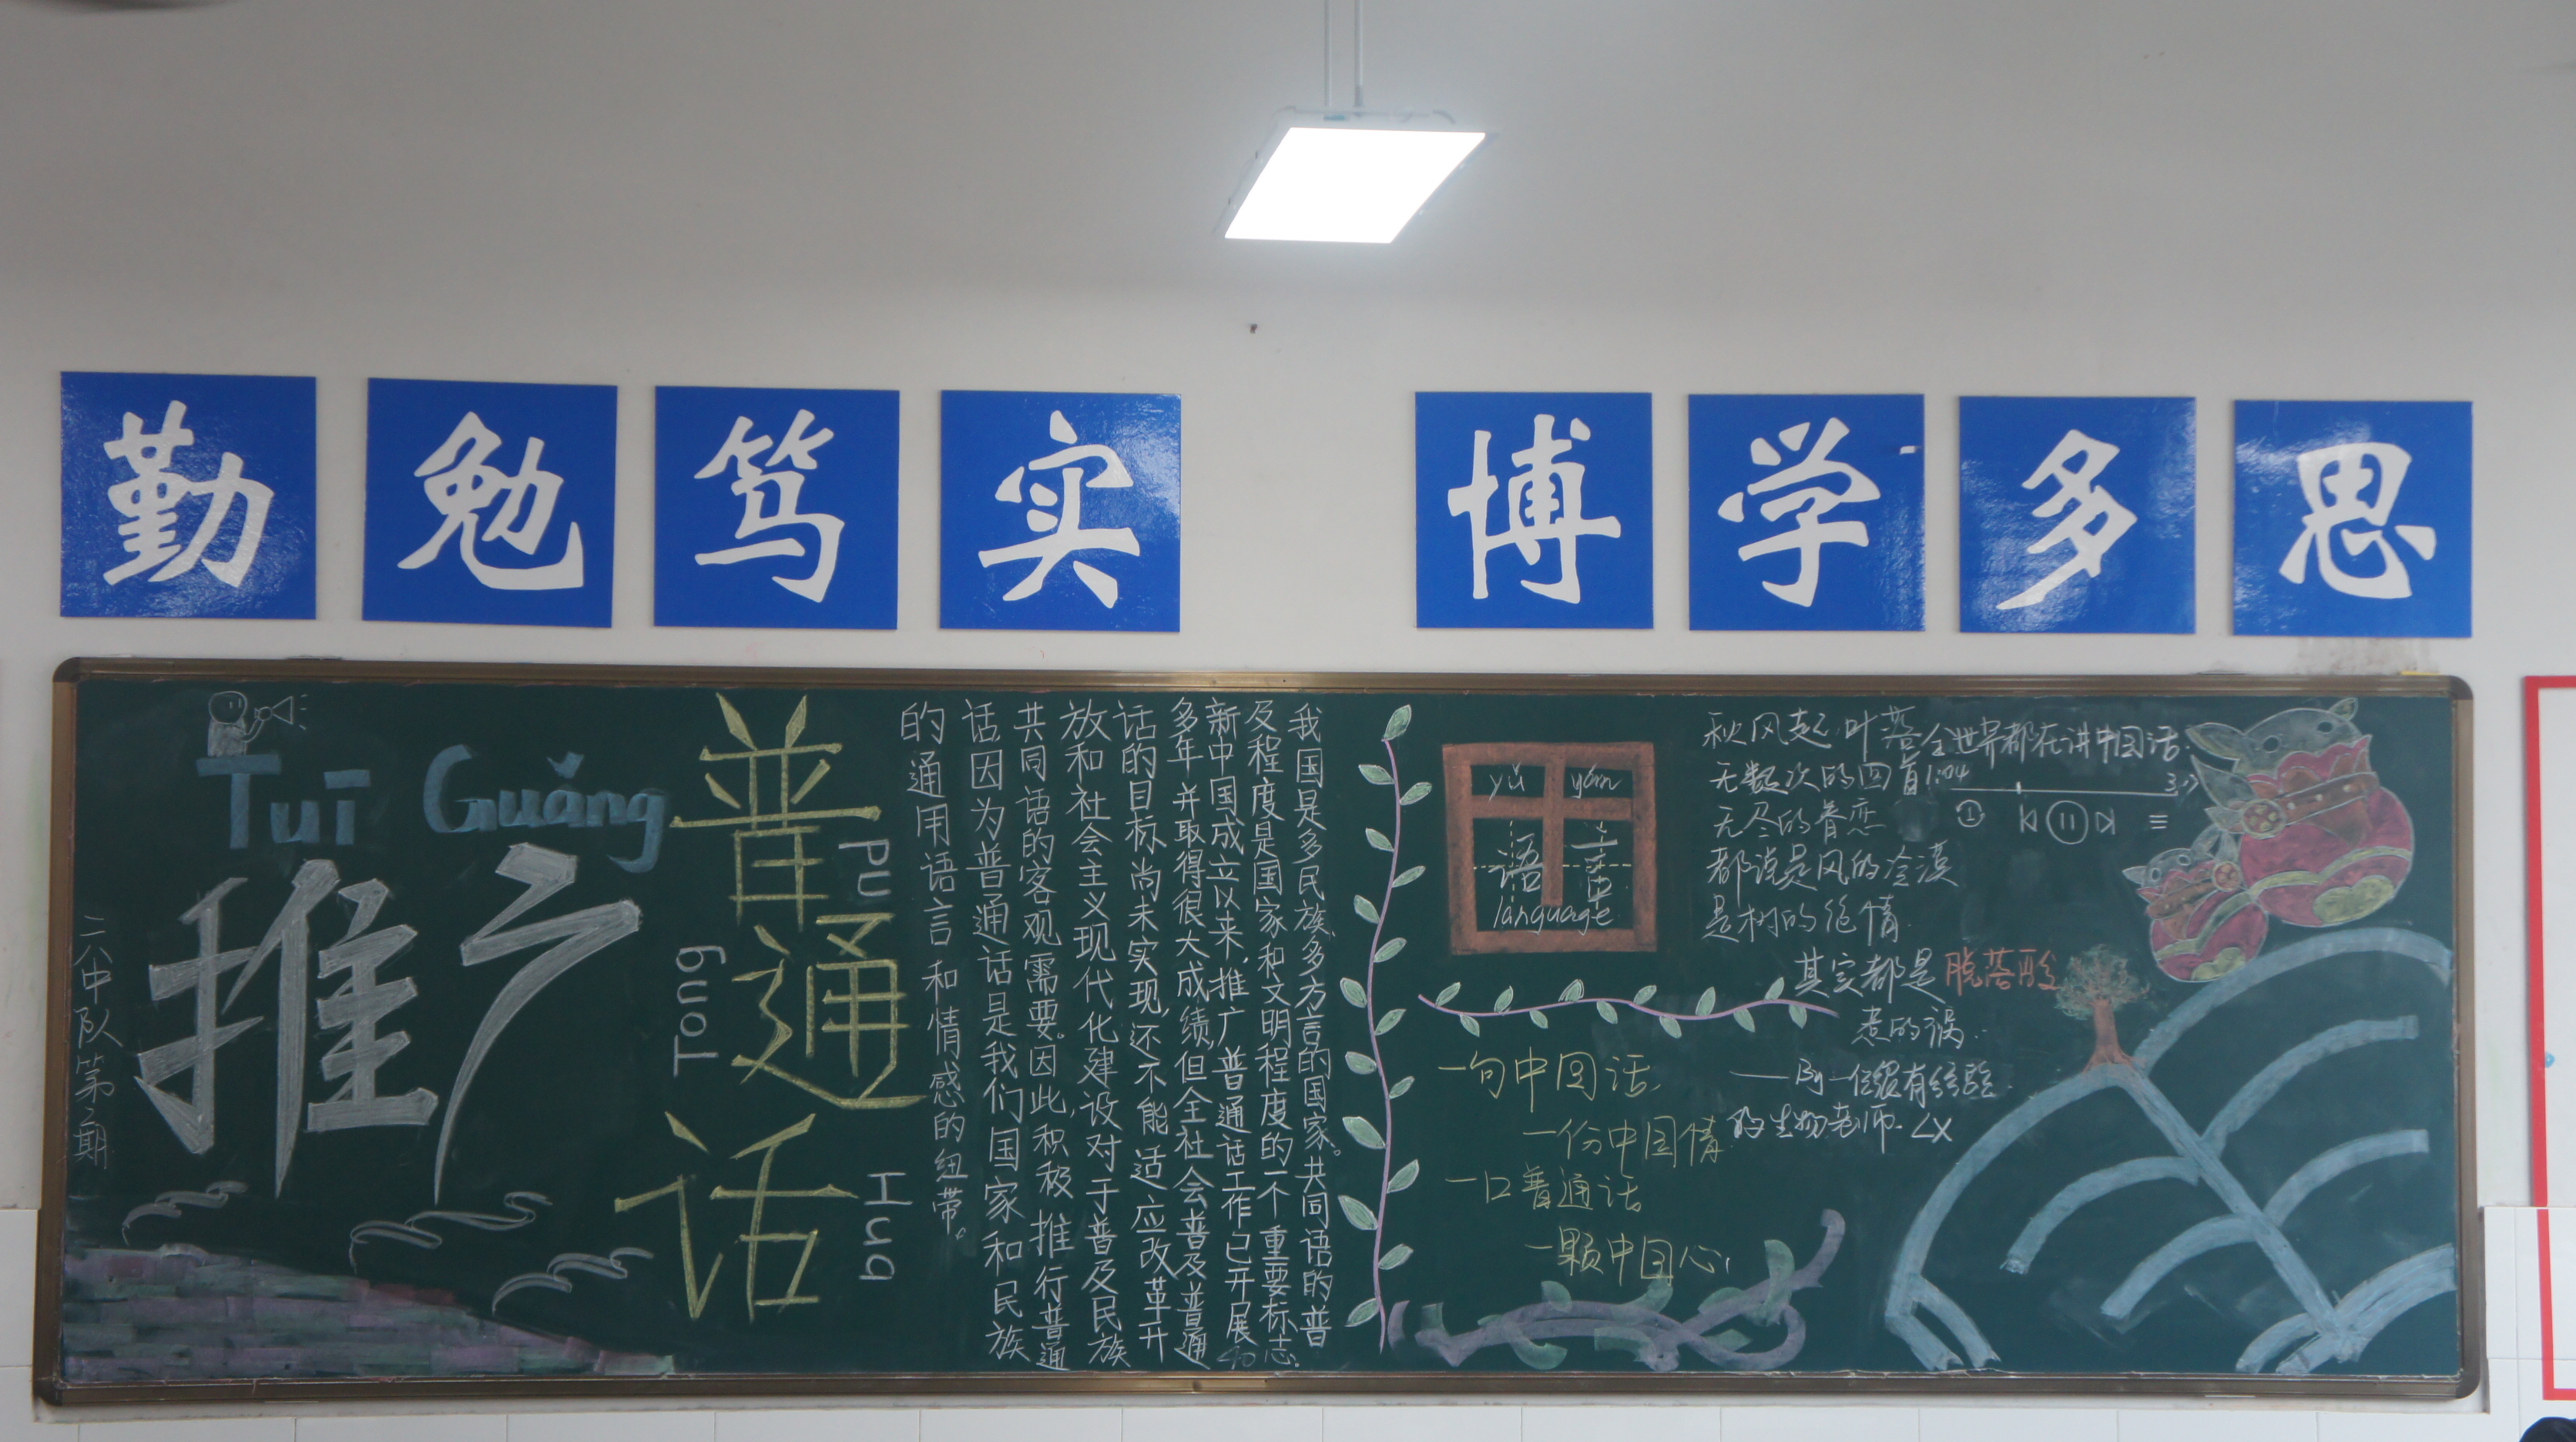 勤勉笃实 博学多思
Tuī Guǎng
推广
普通话
Pu
Tong
Hua
二八中队第二期
我国是多民族、多方言的国家。共同语的普
及程度是国家和文明程度的一个重要标志。
新中国成立以来,推广普通话工作已开展40
多年,并取得很大成绩,但全社会普及普通
话的目标尚未实现,还不能适应改革开
放和社会主义现代化建设对于普及民族
共同语的客观需要。因此,积极推行普通
话因为普通话是我们国家和民族
的通用语言和情感的纽带。
yǔ yán
语言
language
一句中国话
一份中国情
一口普通话
一颗中国心
秋风起,叶落
无数次的回首
无尽的眷恋
都说是风的冷漠
是树的绝情
其实都是脱落酸
惹的祸.
——By一位很有经验
的生物老师. LX
全世界都在讲中国话.
1:04